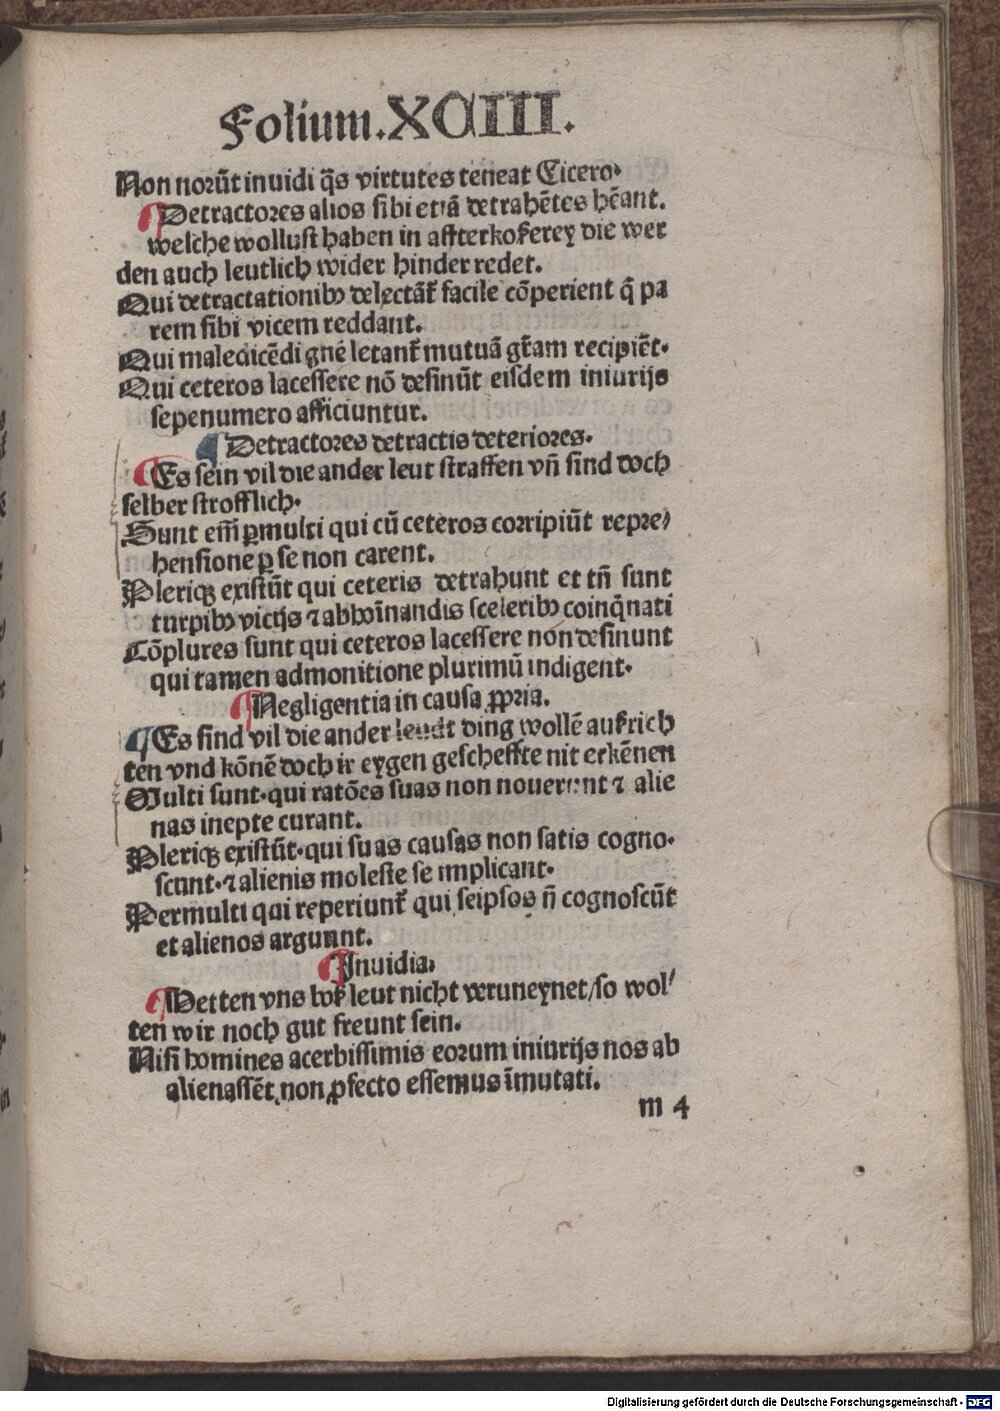 Folium.XCIII.
Non norūt inuidi q̄s virtutes teneat Cicero.
¶Detractores alios sibi etiā detrahētes hēant.
welche wollust haben in affterkoserey die wer
den auch leutlich wider hinder redet.
Qui detractationibꝰ delectāt̄ facile cōperient q̄ pa
rem sibi vicem reddant.
Qui maledicēdi gn̄e letant̄ mutuā gr̄am recipiēt.
Qui ceteros lacessere nō desinūt eisdem iniurijs
sepenumero afficiuntur.
¶Detractores detractis deteriores.
¶Es sein vil die ander leut straffen vn̄ sind doch
selber strofflich.
Sunt em̄ ꝑmulti qui cū ceteros corripiūt repre⸗
hensione ꝑ se non carent.
Pleriqꝫ existūt qui ceteris detrahunt et tn̄ sunt
turpibꝰ vicijs ⁊ abhoīnandis sceleribꝰ coinq̄nati
Cōplures sunt qui ceteros lacessere non desinunt
qui tamen admonitione plurimū indigent.
¶Negligentia in causa ꝓpria.
¶Es sind vil die ander leudt ding wollē aufrich
ten vnd kōnē doch ir eygen gescheffte nit erkēnen
Multi sunt.qui ratōes suas non nouerunt ⁊ alie
nas inepte curant.
Pleriqꝫ existūt.qui suas causas non satis cogno.
scunt.⁊ alienis moleste se implicant.
Permulti qui reperiunt̄ qui seipsos n̄ cognoscūt
et alienos arguunt.
¶Inuidia.
¶Hetten vns boß leut nicht veruneynet/so wol⸗
ten wir noch gut freunt sein.
Nisi homines acerbissimis eorum iniurijs nos ab
alienassēt non ꝓfecto essemus īmutati.
m 4
Digitalisierung gefördert durch die Deutsche Forschungsgemeinschaft - DFG